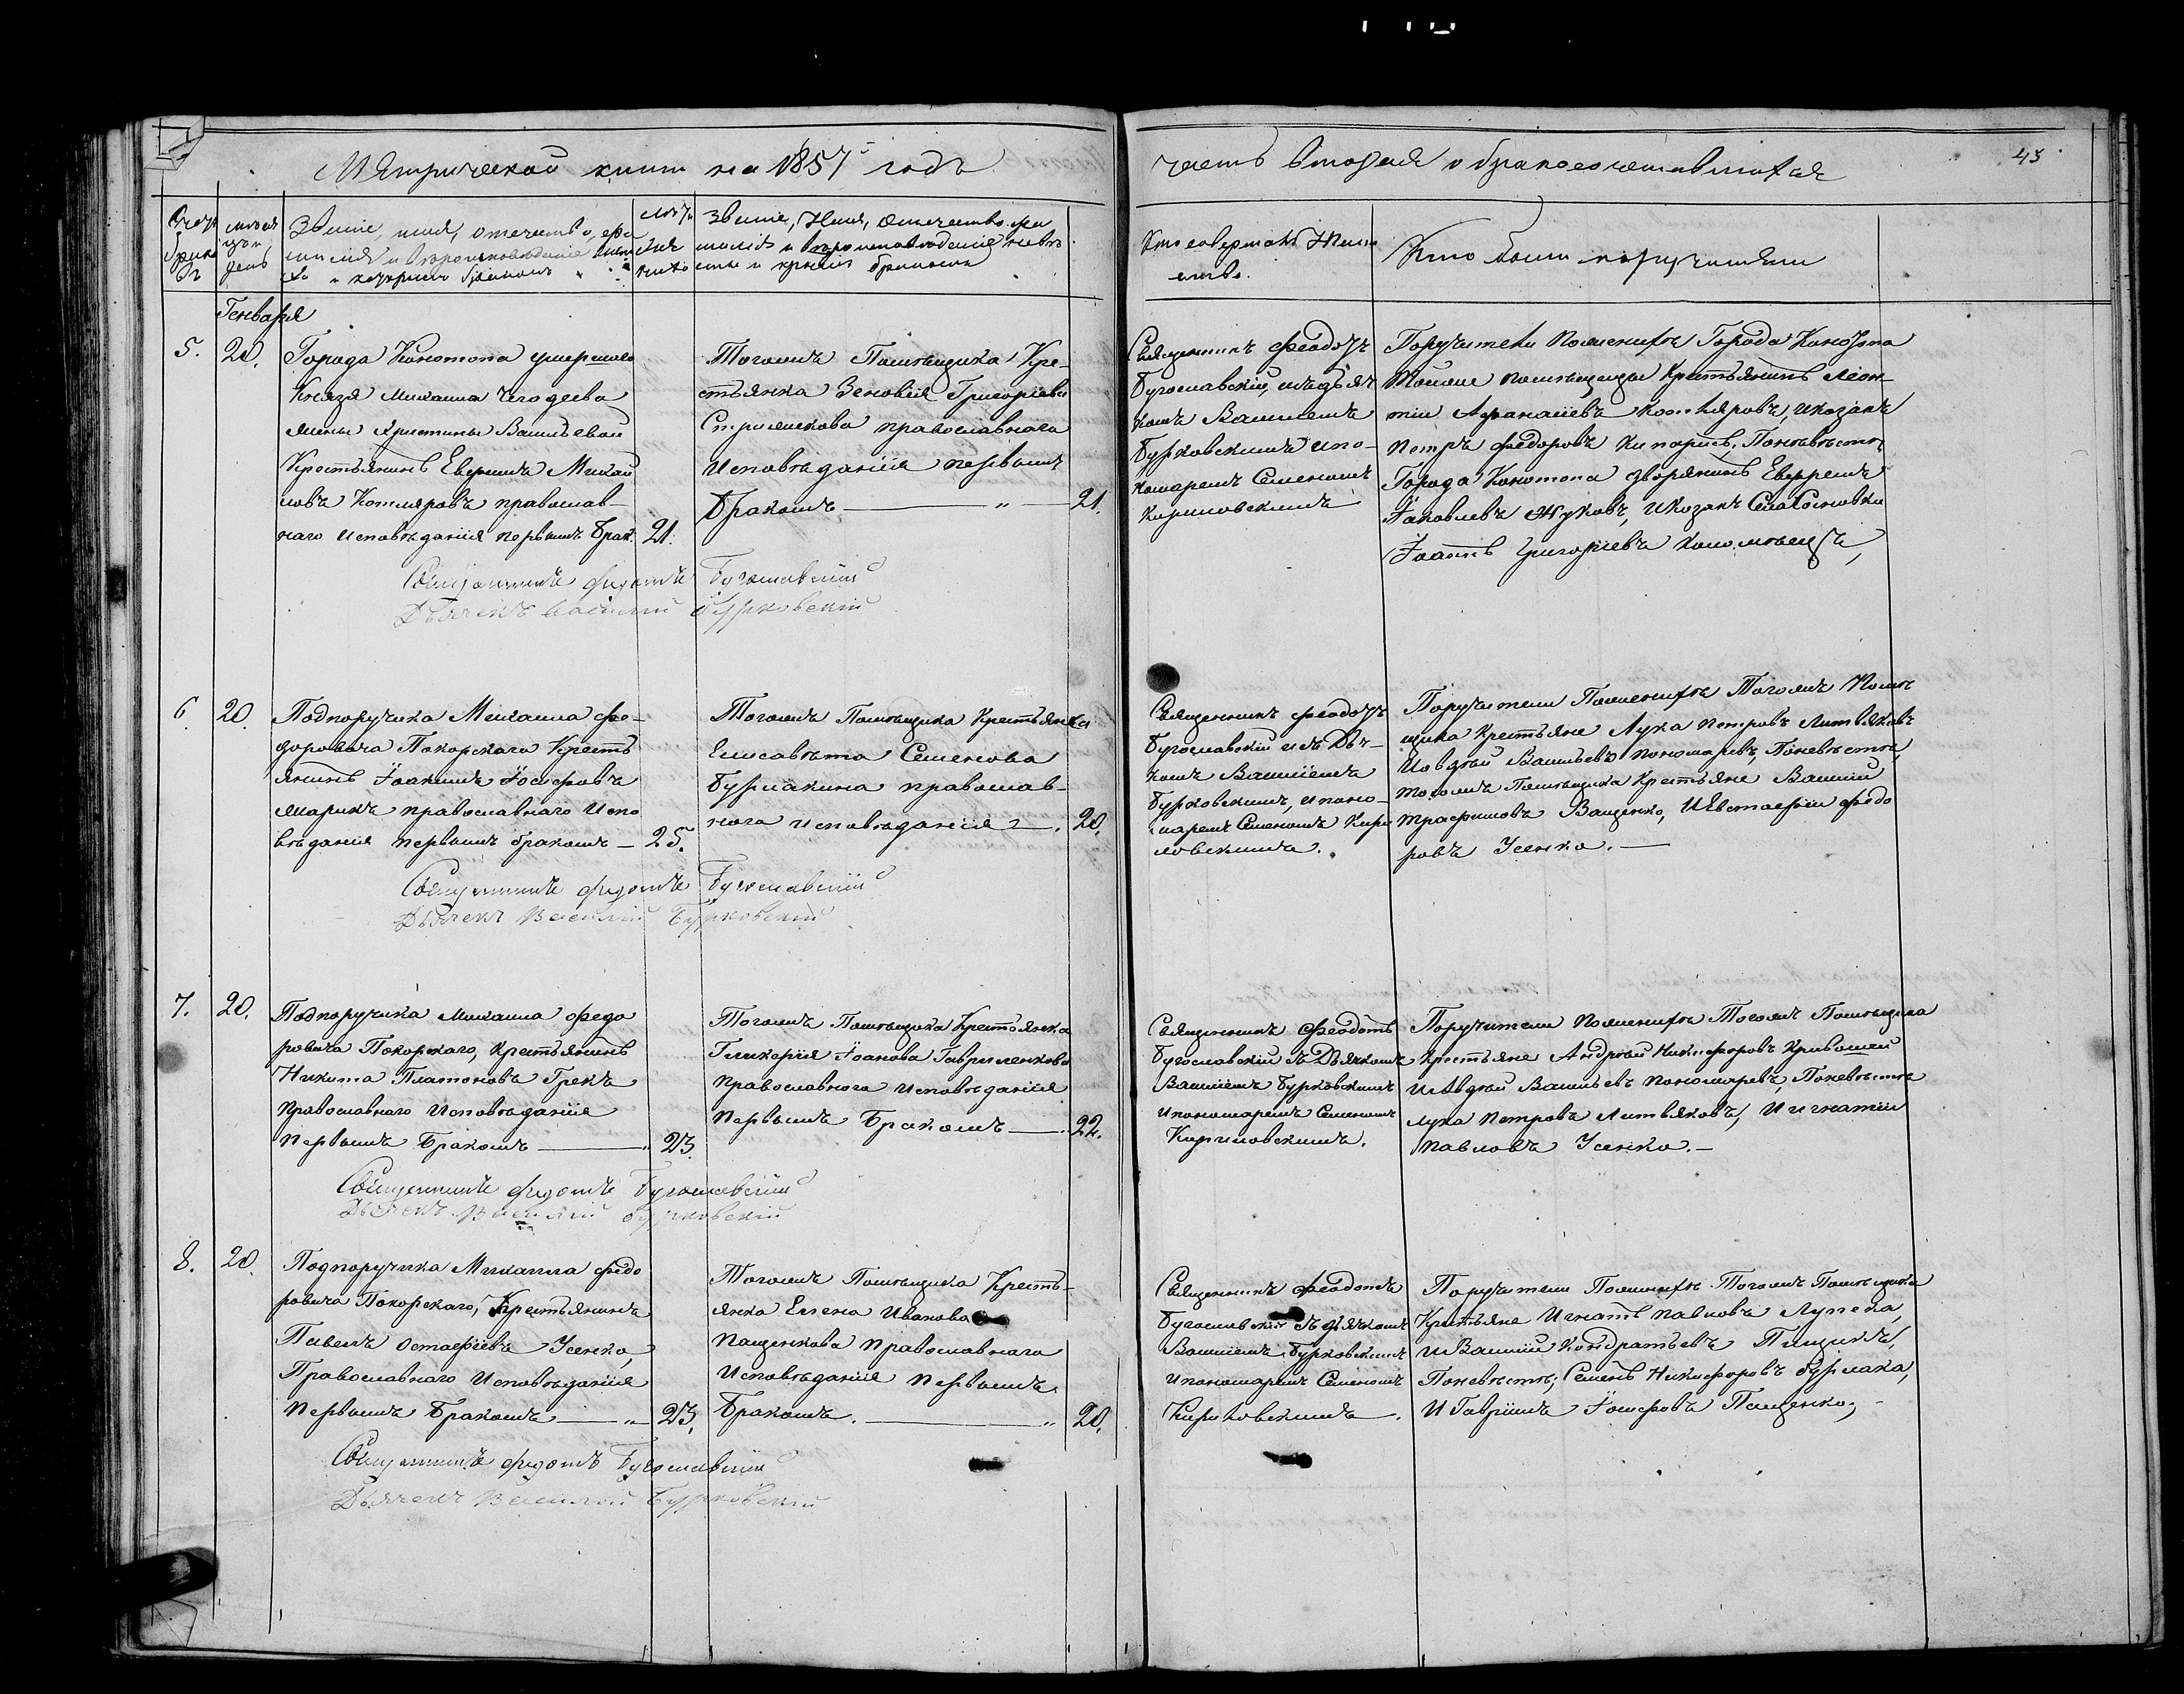 Метрической книги на 1857 годъ
часть вторая о бракосочетавшихся
43
Счетъ браковъ
мѣсяцъ и день
Званіе, имя, отечество, фа
милія и вѣроисповѣданіе жени
ха и которымъ бракомъ
лѣта жениха
Званіе, Имя, Отечество фа
милія и вѣроисповѣданіе невѣ
сты и которымъ бракомъ
Кто совершалъ Таин
ство.
Кто были поручители
Генваря
5. 20.
Города Конотопа умершаго
Князя Михаила Чегодаева
жены Христины Васильевой
Крестьянинъ Михай
ловъ Котляровъ православ-
наго исповѣданія первымъ брак. 21.
Тогожъ Помѣщика Кре-
стьянка Зеновія Григоріева
православнаго
Исповѣданія первымъ
Бракомъ — 21.
Священникъ Феодотъ
Бугославскій, съ дьяч
комъ Василіемъ
Бурковскимъ и по-
номаремъ Семеномъ
Кириловскимъ
Поручители по женихѣ Города Конотопа
тойже помѣщицы Крестьянинъ Леон-
тій Афанасіевъ Котляровъ, и козакъ
Петръ Федоровъ По невѣстѣ,
Города Конотопа дворянинъ
Яковлевъ Жуковъ, и козакъ Села Сосновки
Іоаннъ Григоріевъ
Священникъ Федотъ Бугославскій
Дьячекъ Василій Бурковскій
6. 20.
Подпоручика Михаила Фе-
доровича Покорскаго Кресть
янинъ Іоакимъ Іосифовъ
Марикъ православнаго Испо
вѣданія первымъ бракомъ — 25.
Тогожъ Помѣщика Крестьянка
Елисавета Семенова
Бурлакина православ-
наго исповѣданія — 20.
Священникъ Феодотъ
Бугославскій съ Дьяч-
комъ Василіемъ
Бурковскимъ, и поно-
маремъ Семеномъ Кири
ловскимъ.
Поручители По женихѣ Тогожъ Помѣ
щика Крестьяне Лука Петровъ Литвяковъ
и Овдѣй Васильевъ Пономаревъ, По невѣстѣ,
тогожъ Помѣщика Крестьяне Василій
Трофимовъ Ващенко, и Евстафій Федо
ровъ Усенко. —
Священникъ Федотъ Бугославскій
Дьячекъ Василій Бурковскій
7. 20.
Подпоручика Михаила Федо
ровича Покорскаго, Крестьянинъ
Никита Платоновъ Грекъ
Православнаго Исповѣданія
Первымъ Бракомъ — 23.
Тогожъ Помѣщика Крестьянка
Гликерія Іоанова Гавриленкова
Православнаго Исповѣданія
Первымъ Бракомъ — 22.
Священникъ Феодотъ
Бугославскій съ Дьячкомъ
Василіемъ Бурковскимъ
и пономаремъ Семеномъ
Кириловскимъ.
Поручители По женихѣ Тогожъ Помѣщика
Крестьяне Андрей Никифоровъ Кривошей
и Авдѣй Васильевъ Пономаревъ, По невѣстѣ
Лука Петровъ Литвяковъ, и Игнатій
Павловъ Усенко. —
Священникъ Федотъ Бугославскій
Дьячекъ Василій Бурковскій
8. 20.
Подпоручика Михаила Федо
ровича Покорскаго, Крестьянинъ
Павелъ Остафіевъ Усенко,
Православнаго Исповѣданія
Первымъ Бракомъ — 23.
Тогожъ Помѣщика Кресть-
янка Елена Иванова
Пащенкова Православнаго
Исповѣданія Первымъ
Бракомъ. — 20.
Священникъ Феодотъ
Бугославскій съ дьячкомъ
Василіемъ Бурковскимъ
и пономаремъ Семеномъ
Кириловскимъ.
Поручители По женихѣ Тогожъ Помѣщика
Крестьяне Игнатъ Павловъ Лупека,
и Василій Кондратьевъ Пищикъ,
По невѣстѣ; Семенъ Никифоровъ Бурлака,
и Гавріилъ Іосифовъ Пащенко, —
Священникъ Федотъ Бугославскій
Дьячекъ Василій Бурковскій